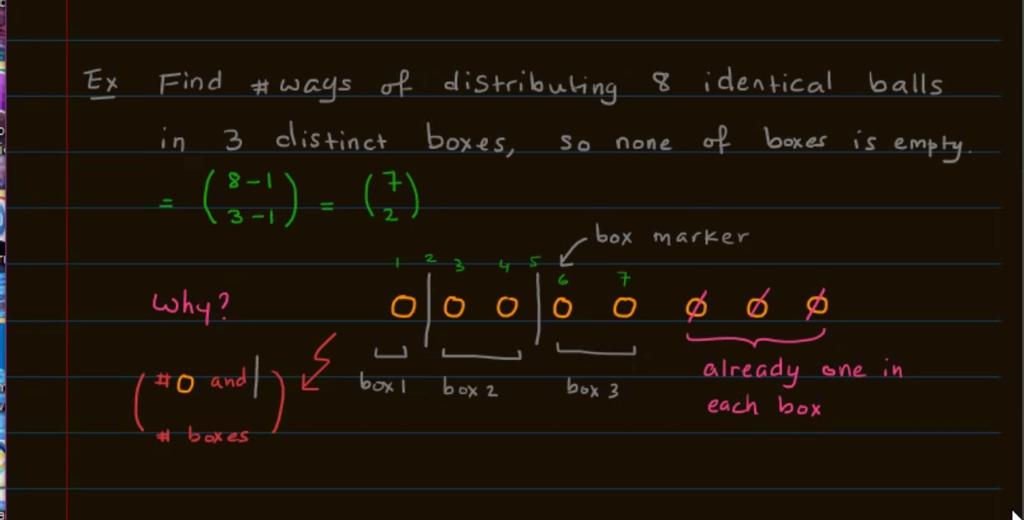 Ex Find # ways of distributing 8 identical balls
in 3 distinct boxes, so none of boxes is empty.
= (8-1 3-1) = (7 2)
box marker
1 2 3 4 5 6 7
Why? O | O O | O O Ø Ø Ø
box 1 box 2 box 3
already one in
each box
(# O and |
# boxes)